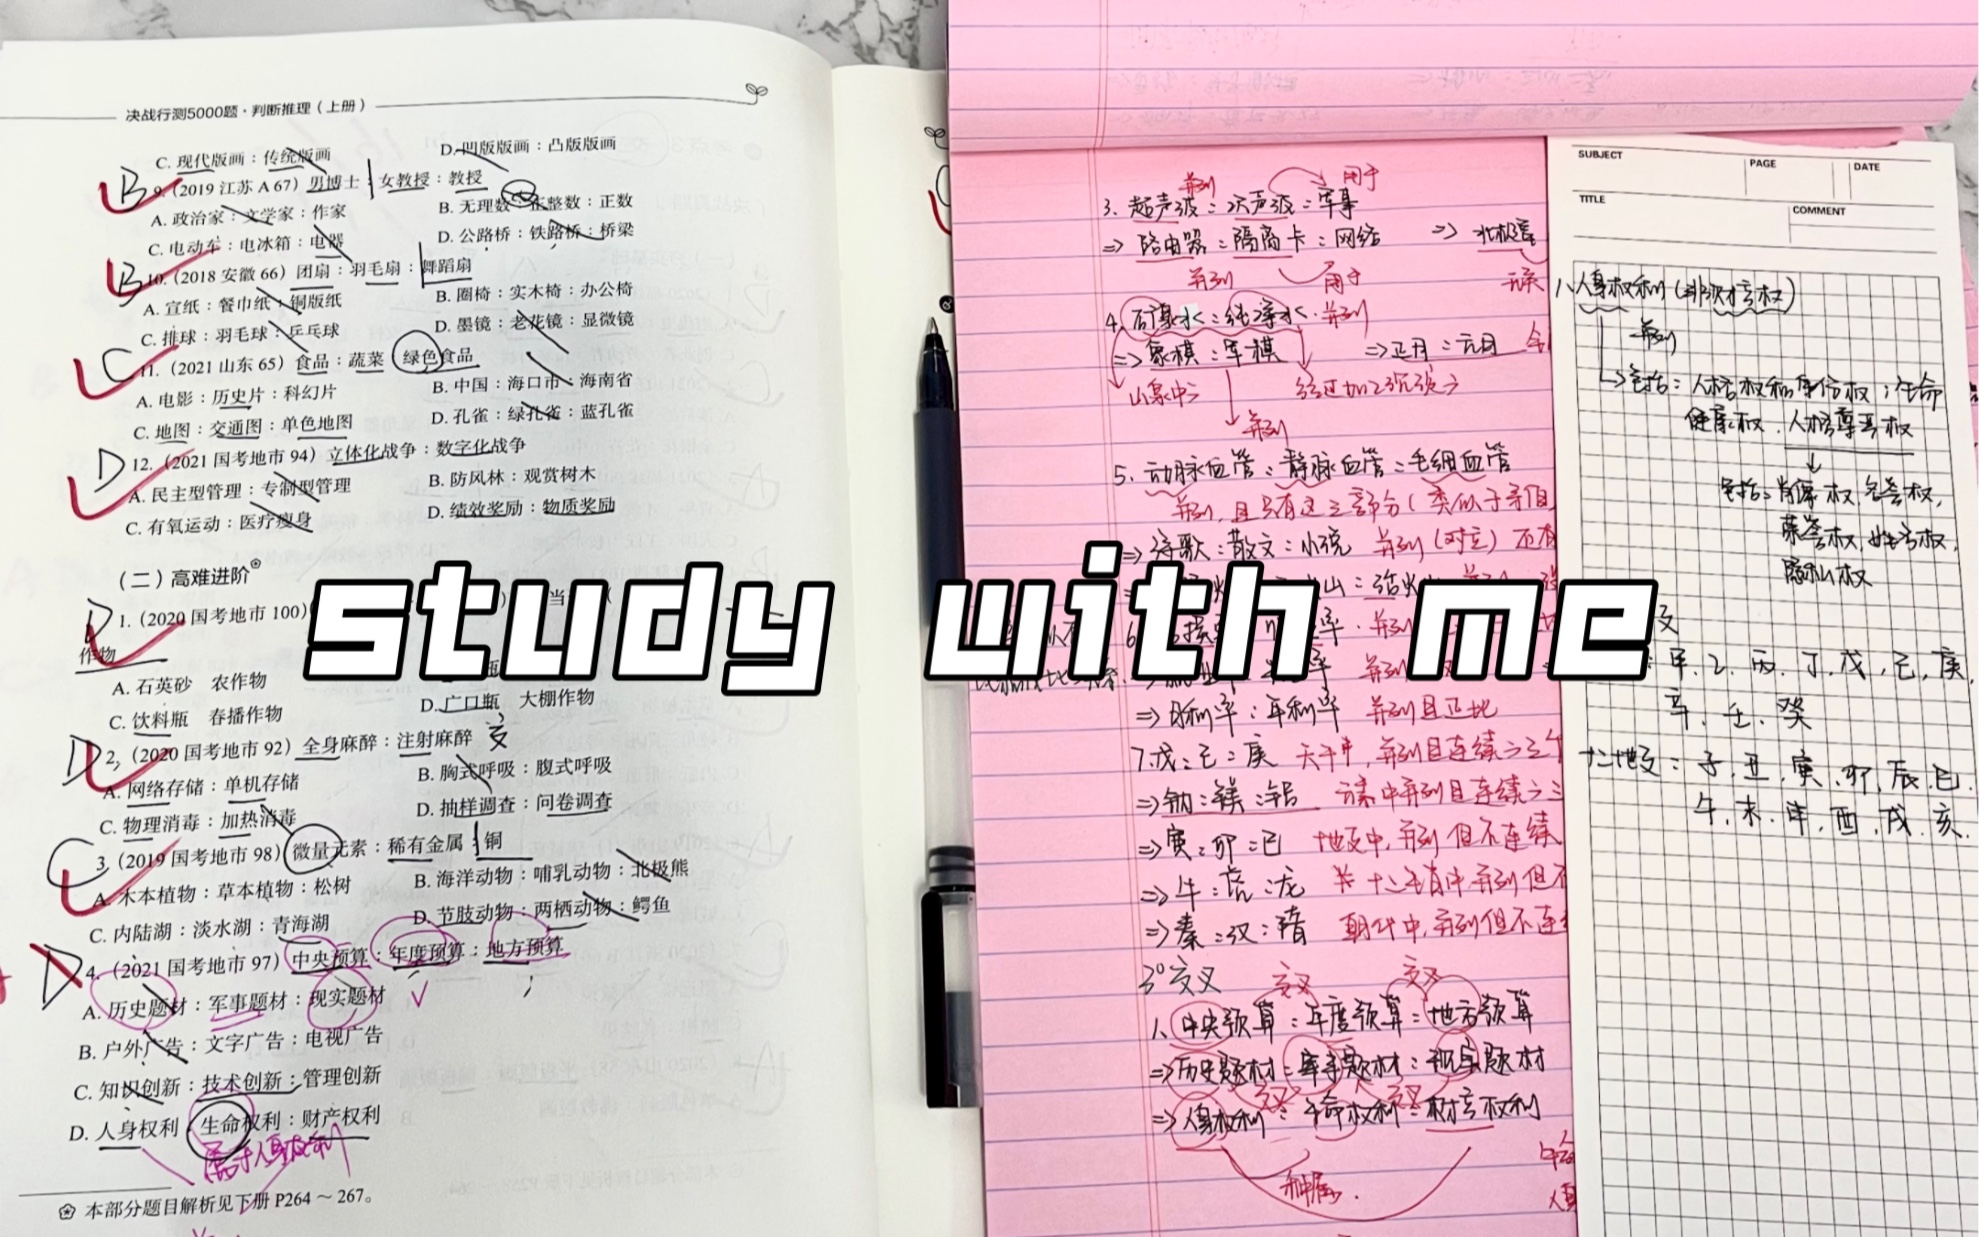 决战行测5000题·判断推理（上册）
C. 现代版画：传统版画
D. 凹版版画：凸版版画
B
9.（2019 江苏 A 67）男博士：女教授：教授
A. 政治家：文学家：作家
B. 无理数：正整数：正数
C. 电动车：电冰箱：电器
D. 公路桥：铁路桥：桥梁
B
10.（2018 安徽 66）团扇：羽毛扇：舞蹈扇
A. 宣纸：餐巾纸：铜版纸
B. 圈椅：实木椅：办公椅
C. 排球：羽毛球：乒乓球
D. 墨镜：老花镜：显微镜
C
11.（2021 山东 65）食品：蔬菜：绿色食品
A. 电影：历史片：科幻片
B. 中国：海口市：海南省
C. 地图：交通图：单色地图
D. 孔雀：绿孔雀：蓝孔雀
D
12.（2021 国考地市 94）立体化战争：数字化战争
A. 民主型管理：专制型管理
B. 防风林：观赏树木
C. 有氧运动：医疗瘦身
D. 绩效奖励：物质奖励
（二）高难进阶
D
1.（2020 国考地市 100）
作物
A. 石英砂 农作物
C. 饮料瓶 春播作物
D. 广口瓶 大棚作物
D
2.（2020 国考地市 92）全身麻醉：注射麻醉 交
A. 网络存储：单机存储
B. 胸式呼吸：腹式呼吸
C. 物理消毒：加热消毒
D. 抽样调查：问卷调查
C
3.（2019 国考地市 98）微量元素：稀有金属：铜
A. 木本植物：草本植物：松树
B. 海洋动物：哺乳动物：北极熊
C. 内陆湖：淡水湖：青海湖
D. 节肢动物：两栖动物：鳄鱼
D
4.（2021 国考地市 97）中央预算：年度预算：地方预算
A. 历史题材：军事题材：现实题材
B. 户外广告：文字广告：电视广告
C. 知识创新：技术创新：管理创新
D. 人身权利：生命权利：财产权利
属于人身权利
本部分题目解析见下册 P264～267。
study with me
并列 用于
3. 超声波：次声波：军事
⇒ 路由器：隔离卡：网络 ⇒ 北极星
并列 用于
4. 矿泉水：纯净水 并列
⇒ 象棋：军棋 ⇒ 正月：元月
山泉中
并列
5. 动脉血管：静脉血管：毛细血管
并列，且只有这三部分（类似于矛盾
⇒ 诗歌：散文：小说 并列（对立）还有
⇒ 月利率：年利率 并列且正比
7. 戊：己：庚 天干中，并列且连续之三个
⇒ 钠：镁：铝 元素中并列且连续之三
⇒ 寅：卯：巳 地支中，并列但不连续
⇒ 牛：虎：龙 关十二生肖中并列但不
⇒ 秦：汉：隋 朝代中，并列但不连续
3° 交叉 交叉 交叉
1. 中央预算：年度预算：地方预算
⇒ 历史题材：军事题材：现实题材
交叉 交叉
⇒ 人身权利：生命权利：财产权利
种属.
SUBJECT
PAGE
DATE
TITLE
COMMENT
1. 人身权利（非财产权）
并列
包括：人格权和身份权；生命
健康权、人格尊严权
包括：肖像权，名誉权，
荣誉权，姓名权，
隐私权
甲，乙，丙，丁，戊，己，庚，
辛，壬，癸
十二地支：子，丑，寅，卯，辰，巳，
午，未，申，酉，戌，亥.